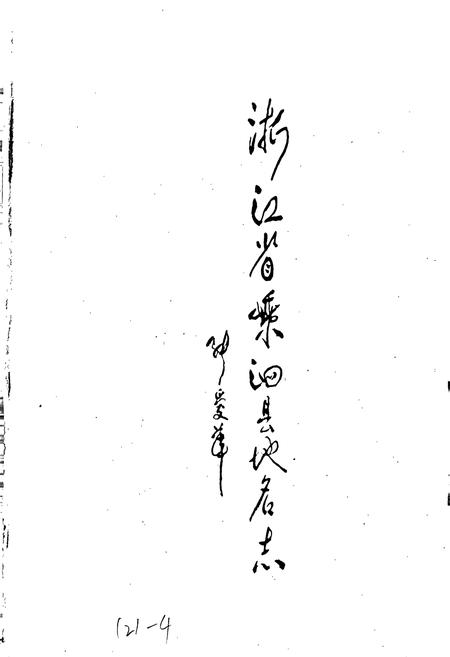 浙江省嵊泗县地名志
121-4